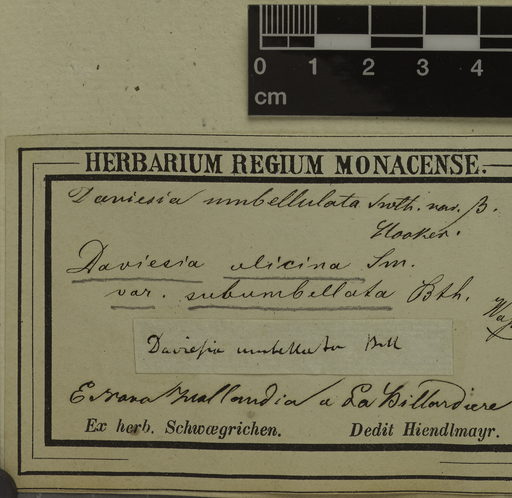 0 1 2 3 4
cm
HERBARIUM REGIUM MONACENSE.
Daviesia umbellulata Smth. var. β.
Hooker.
Daviesia ulicina Sm.
var. subumbellata Bth.
Daviesia umbellata Bill
E Nova Hollandia a La Billardiere
Ex herb. Schwægrichen. Dedit Hiendlmayr.